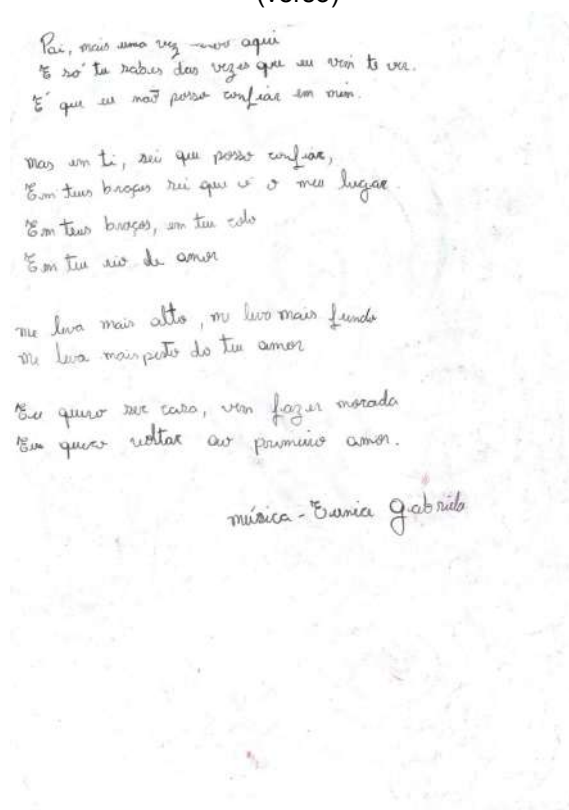 (verso)
Pai, mais uma vez aqui
E só tu sabes das vezes que eu vim te ver.
E' que eu não posso confiar em mim.
mas em ti, sei que posso confiar,
Em teus braços sei que é o meu lugar.
Em teus braços, em teu colo
Em teu rio de amor
me leva mais alto, me leva mais fundo
me leva mais perto do teu amor
Eu quero ser casa, vem fazer morada
Eu quero voltar ao primeiro amor.
música - Eunice Gabriela